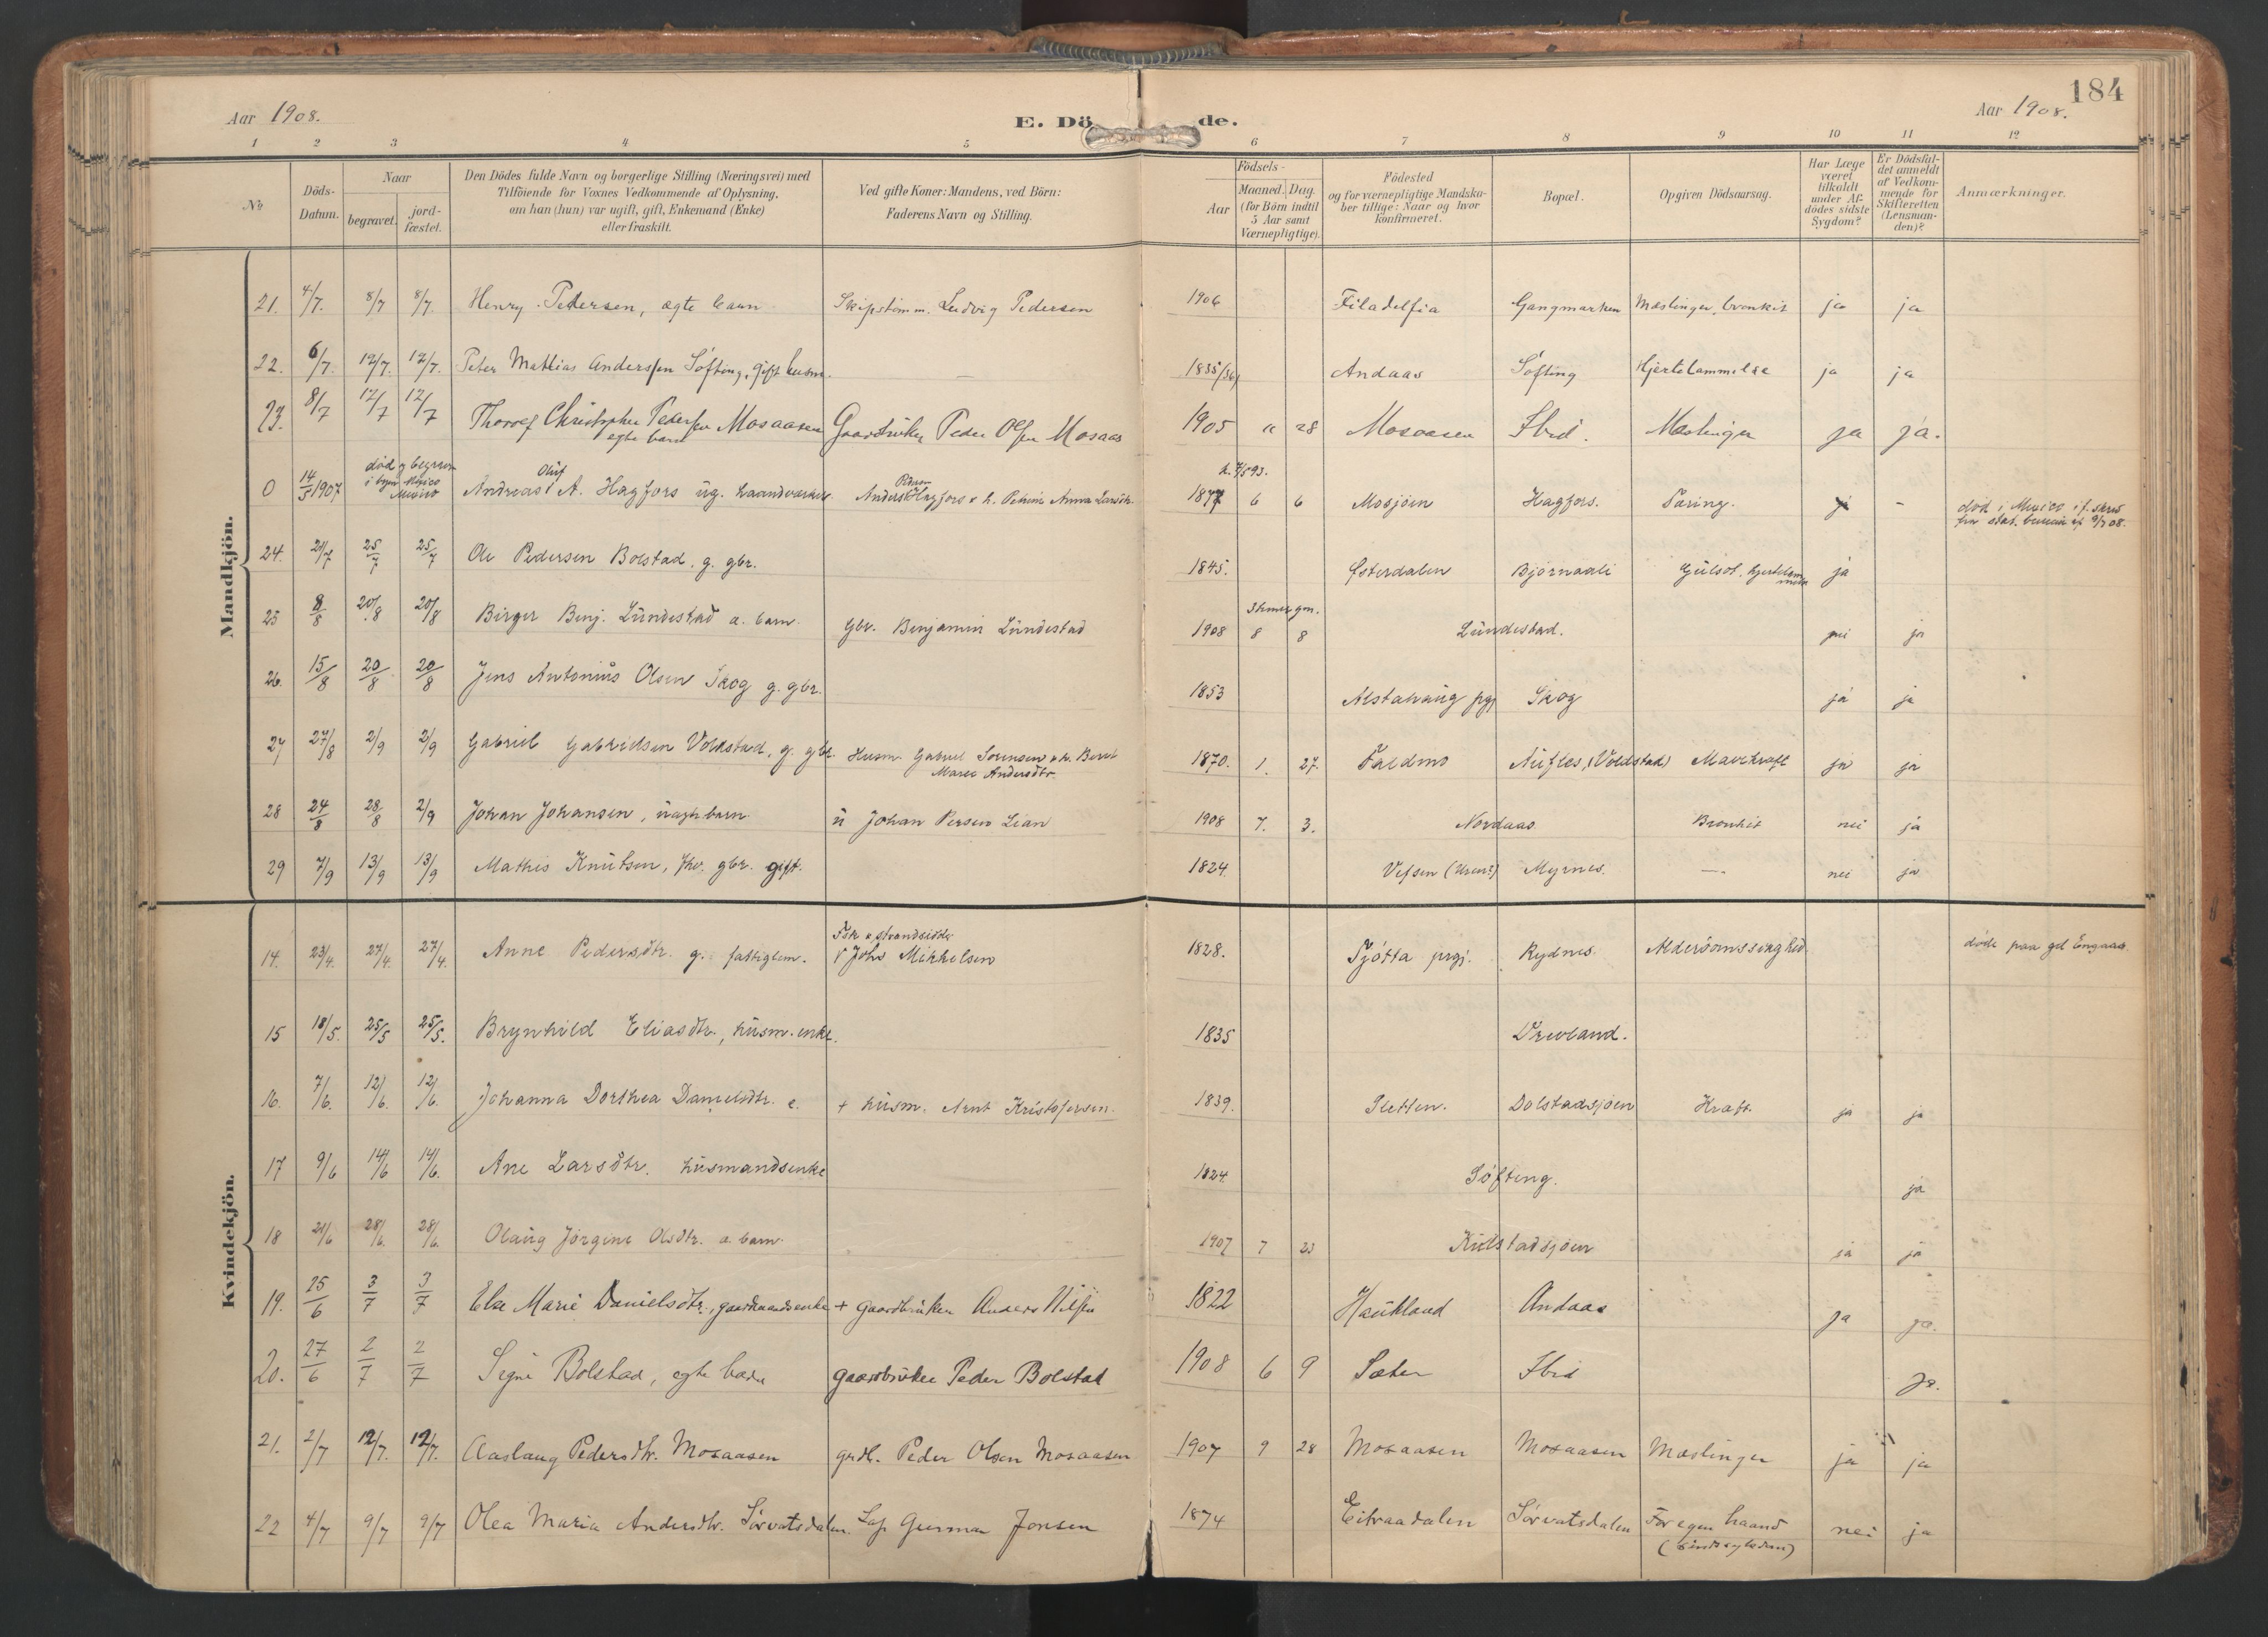 184
Aar 1908.
E. Dö de.
Aar 1908.
1 2 3 4 5 6 7 8 9 10 11 12
No
Döds-Datum.
Naar
begravet.
jord-fæstet.
Den Dödes fulde Navn og borgerlige Stilling (Næringsvei) med
Tilföiende for Voxnes Vedkommende af Oplysning,
om han (hun) var ugift, gift, Enkemand (Enke)
eller fraskilt.
Ved gifte Koner: Mandens, ved Börn:
Faderens Navn og Stilling.
Födsels-
Aar
Maaned. Dag.
(for Börn indtil
5 Aar samt
Værnepligtige).
Födested
og for værnepligtige Mandska-
ber tillige: Naar og hvor
konfirmeret.
Bopæl.
Opgiven Dödsaarsag.
Har Læge
været
tilkaldt
under Af-
dödes sidste
Sygdom?
Er Dödsfal-
det anmeldt
af Vedkom-
mende for
Skifteretten
(Lensman-
den)?
Anmærkninger.
Mandkjön.
21. 4/7. 8/7 8/7. Henry Pedersen, ægte barn Skipstømm. Ludvig Pedersen 1906 Filadelfia Gangmarken Mæslinger, bronkit ja ja
22. 6/7. 12/7. 12/7. Peter Mathias Anderssen Söfting, gift husm. — 1835/36 Andaas Söfting Hjertelammelse ja ja
23. 8/7 12/7 12/7 Thorolf Christopher Pedersen Mosaasen Gaardbruker Peder Olsen Mosaas 1905 11 28 Mosaasen Ibid. Mæslinger ja ja.
egte barn
død og begraven
i byen
Mexico
Oluf
k. 7/5 93.
0 14/5 1907 Andreas A. Hagfors ug. haandværker Anders Hagfors o h. Petrine Anna Larsdtr. 1877 6 6 Mosjöen Hagfors. Tæring. ja – död i Mexico if. skriv
fra stat. bureau af 9/7 08.
24. 21/7 25/7 25/7 Ole Pedersen Bolstad. g. gbr. 1845. Østerdalen Björnaali Gulsot, hjertelam- ja
25 8/8 20/8 20/8 Birger Benj. Lundestad æ. barn. gbr. Benjamin Lundestad 1908 8 8 Lundestad. nei ja
26. 15/8 20/8. 20/8 Jens Antonius Olsen Skog g. gbr. 1853 Alstahaug prgj Skog ja ja
27 27/8 2/9 2/9 Gabriel Gabrielsen Voldstad, g. gbr. Husm. Gabriel Sörensen o h. Berit 1870. 1. 27. Faldmo Nufles, (Voldstad) Mavekræft ja ja
Marie Andersdtr.
28 24/8 28/8 2/9 Johan Johansen, uægte barn. u Johan Persen Lian 1908 7. 3. Nordaas Bronkit nei ja
29 7/9 13/9 13/9 Mathis Knutsen, fhv. gbr. gift. 1824. Vefsen Myrnes. — nei ja
Kvindekjön.
14. 23/4. 27/4. 27/4. Anne Pedersdtr. g. fattiglem. strandsidder 1828. Tjötta prgj. Rydnes. Alderdomssvaghed. døde paa gd Engaas.
Johs Mikkelsen
15 18/5. 25/5 25/5. Brynhild Eliasdtr., husm. enke. 1835 Drevland.
16. 7/6. 12/6. 12/6. Johanna Dorthea Danielsdtr. e. + husm. Arnt Kristofersen. 1839. Sletten. Dolstadsjöen Kræft. ja ja
17 9/6 14/6 14/6. Ane Larsdtr. husmandsenke 1824. Söfting. ja
18 21/6 28/6. 28/6. Olaug Jörgine Olsdtr. æ barn. 1907 7 23 Kulstadsjöen ja ja
19. 25/6 3/7 3/7 Else Marie Danielsdtr, gaardmandsenke + gaardbruker Anders Nilsen 1822 Haukland Andaas ja ja.
20. 27/6 2/7 2/7 Signe Bolstad, egte barn gaardbruker Peder Bolstad 1908 6 9 Sæter Ibid ja.
21. 2/7 12/7. 12/7. Aaslaug Pedersdtr. Mosaasen grdbr. Peder Olsen Mosaasen 1907 9 28 Mosaasen Mosaasen Mæslinger ja ja
22 4/7 9/7 9/7 Olea Maria Andersdtr. Sörvatsdalen. Lap Gunnar Jonsen 1874 Eiteraadalen Sörvatsdalen For egen haand nei ja
(sindssygdom)